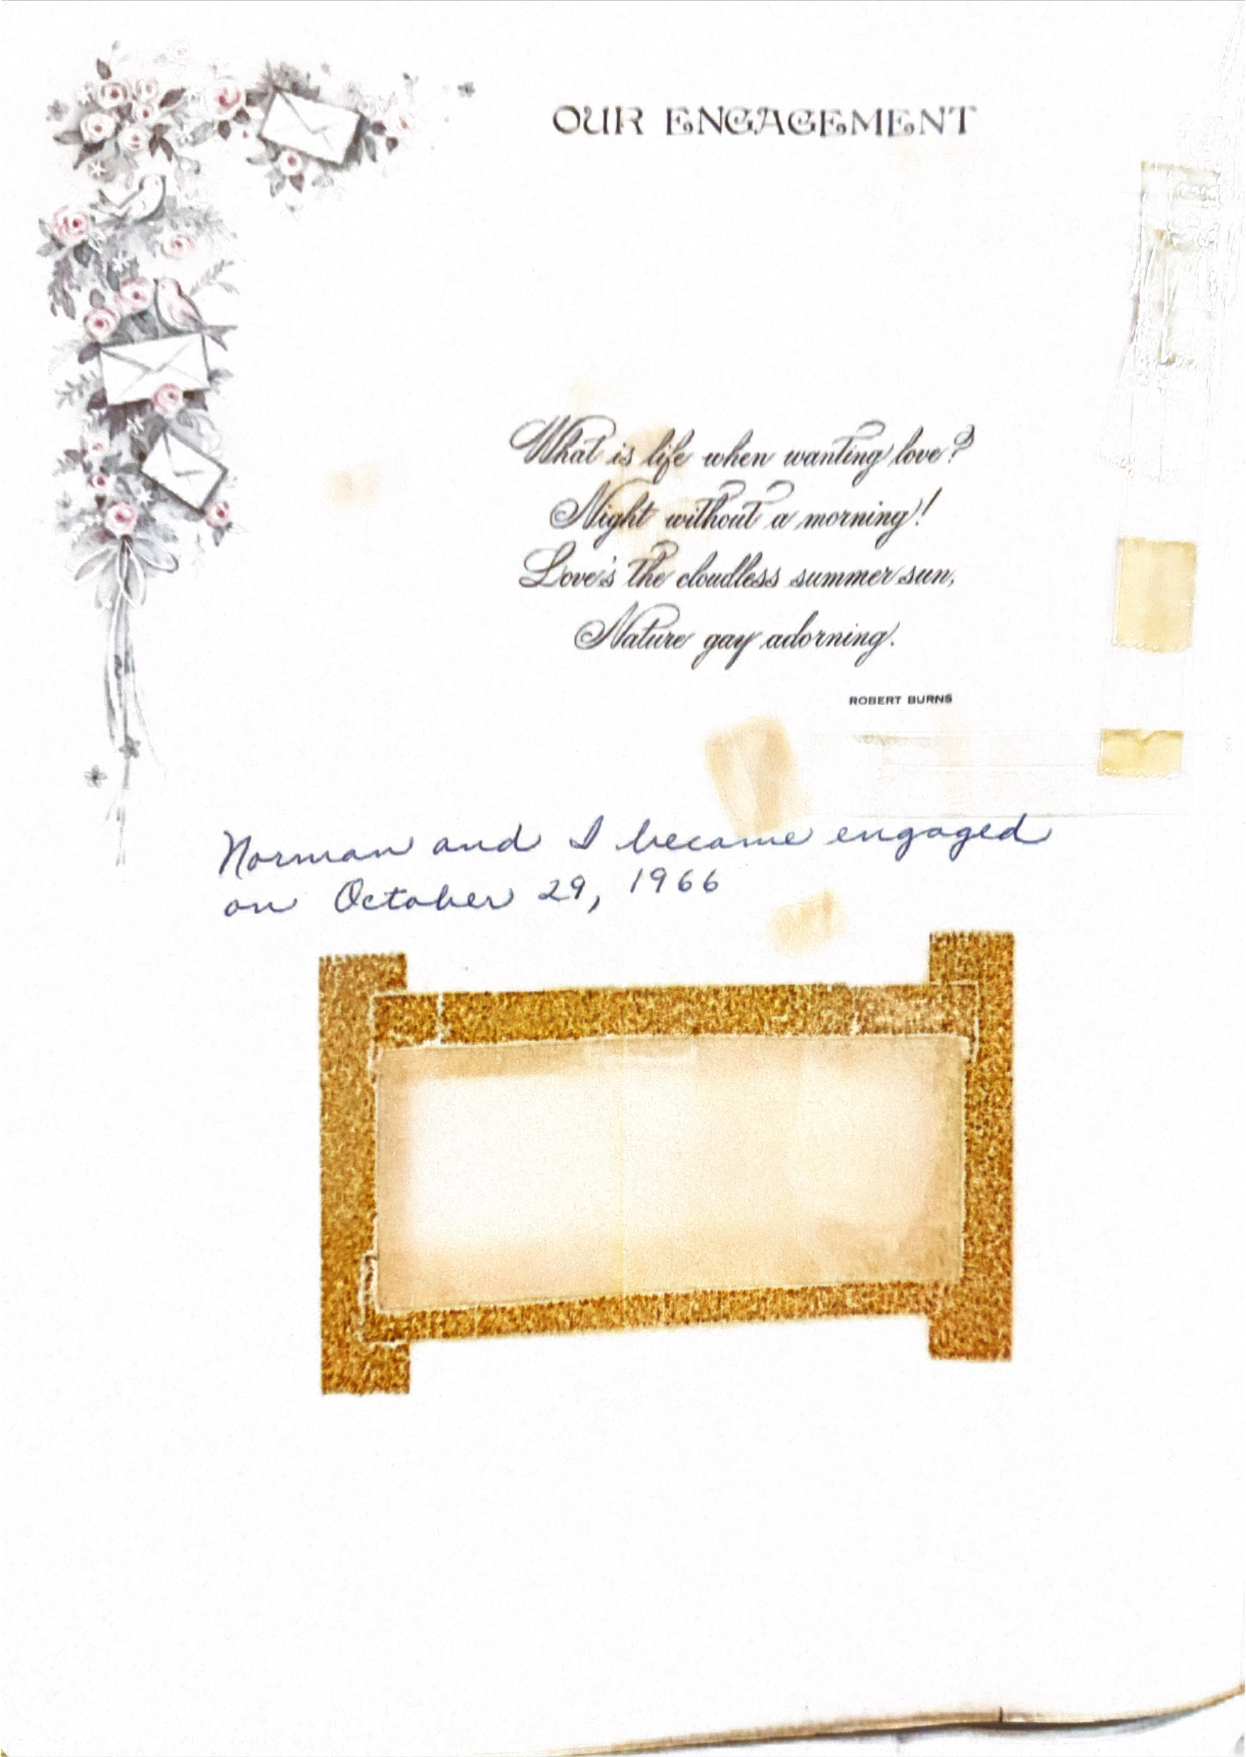 OUR ENGAGEMENT
What is life when wanting love?
Night without a morning!
Love's the cloudless summer sun,
Nature gay adorning.
ROBERT BURNS
Norman and I became engaged
on October 29, 1966